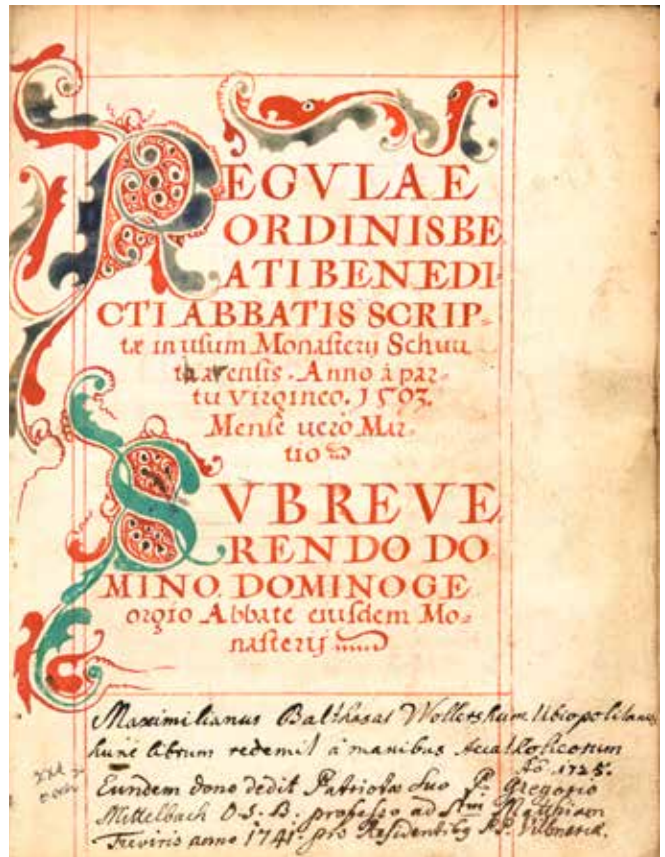 REGVLAE
ORDINIS BE
ATI BENEDI-
CTI ABBATIS SCRIP-
tæ in usum Monasterij Schuu
tarensis. Anno à par-
tu virgineo. 1503.
Mense uero Mar-
tio
SVB REVE
RENDO DO
MINO. DOMINO GE
orgio Abbate eiusdem Mo-
nasterij
Maximilianus Balthasar Wollershum Ubiopolitanus
hunc librum redemit à manibus Acatholicorum
Ao 1725.
Eundem dono dedit Patriotæ suo P. Gregorio
Mittelbach O. S. B. professo ad Stm Matthiam
Treviris anno 1741. pro Residentibq PP.